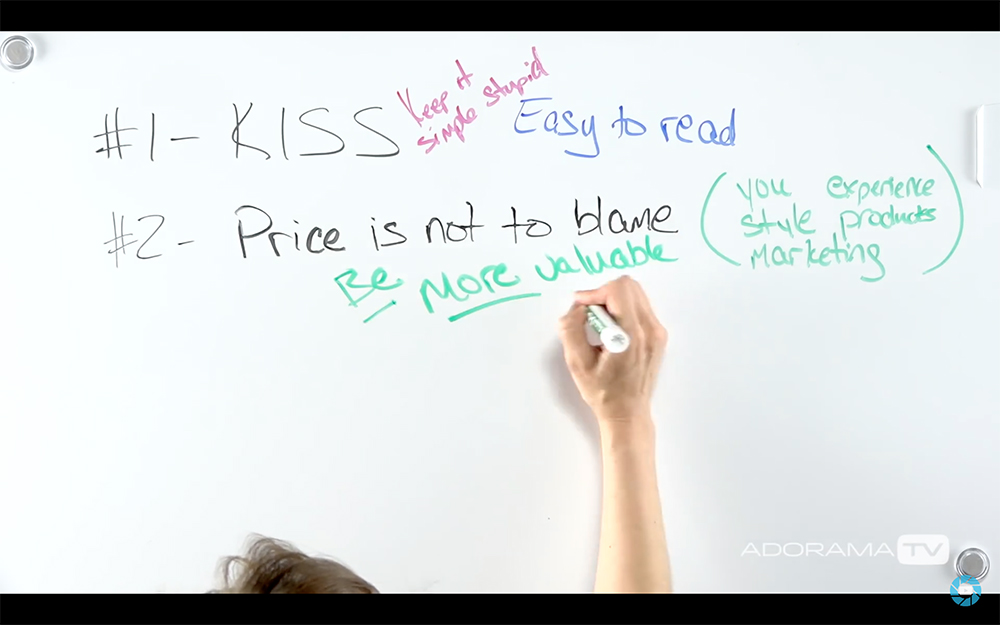 #1 - KISS
Keep it
simple stupid
Easy to read
#2 - Price is not to blame
Be More valuable
(you experience
style products
Marketing)
ADORAMA TV